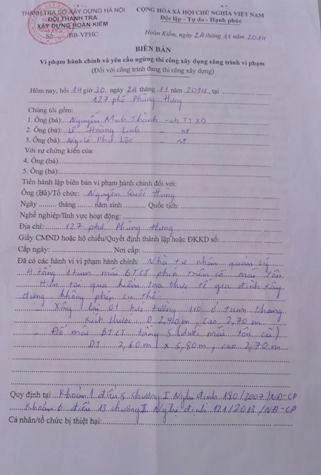 THANH TRA SỞ XÂY DỰNG HÀ NỘI
ĐỘI THANH TRA
XÂY DỰNG HOÀN KIẾM
Số: /BB-VPHC
CỘNG HÒA XÃ HỘI CHỦ NGHĨA VIỆT NAM
Độc lập - Tự do - Hạnh phúc
Hoàn Kiếm, ngày 24 tháng 11 năm 2014
BIÊN BẢN
Vi phạm hành chính và yêu cầu ngừng thi công xây dựng công trình vi phạm
(Đối với công trình đang thi công xây dựng)
Hôm nay, hồi 14 giờ 30, ngày 24 tháng 11 năm 2014, tại
127 phố Phùng Hưng
Chúng tôi gồm:
1. Ông (bà): Nguyễn Minh TTXD
2. Ông (bà): Lê Hoàng Linh
3. Ông (bà): Ng. Lê Phú Lộc
Với sự chứng kiến của:
4. Ông (bà):
5. Ông (bà):
Tiến hành lập biên bản vi phạm hành chính đối với:
Ông (Bà)/Tổ chức: Nguyễn Quốc Hùng
Ngày tháng năm sinh Quốc tịch:
Nghề nghiệp/lĩnh vực hoạt động:
Địa chỉ: 127 phố Phùng Hưng
Giấy CMND hoặc hộ chiếu/Quyết định thành lập hoặc ĐKKD số:
Cấp ngày: Nơi cấp:
Đã có các hành vi vi phạm hành chính: Nhà tư nhân quản lý
4 tầng 1 tum mái BTCT phía trên có mái tôn.
Hiện tại qua kiểm tra thực tế gia đình xây
dựng không phép cụ thể:
- Xây lại 01 tường 110 ở tum thang
Kích thước: D 2,90 m, cao 2,70 m
- Đổ mái BTCT tầng 5 (dưới mái tôn cũ)
DT 2,60 m x 5,80 m, cao 2,70 m
Quy định tại Khoản 1 điều 5 chương II Nghị định 180/2007/NĐ-CP
Khoản 6 điều 13 chương II Nghị định 121/2013/NĐ-CP
Cá nhân/tổ chức bị thiệt hại: